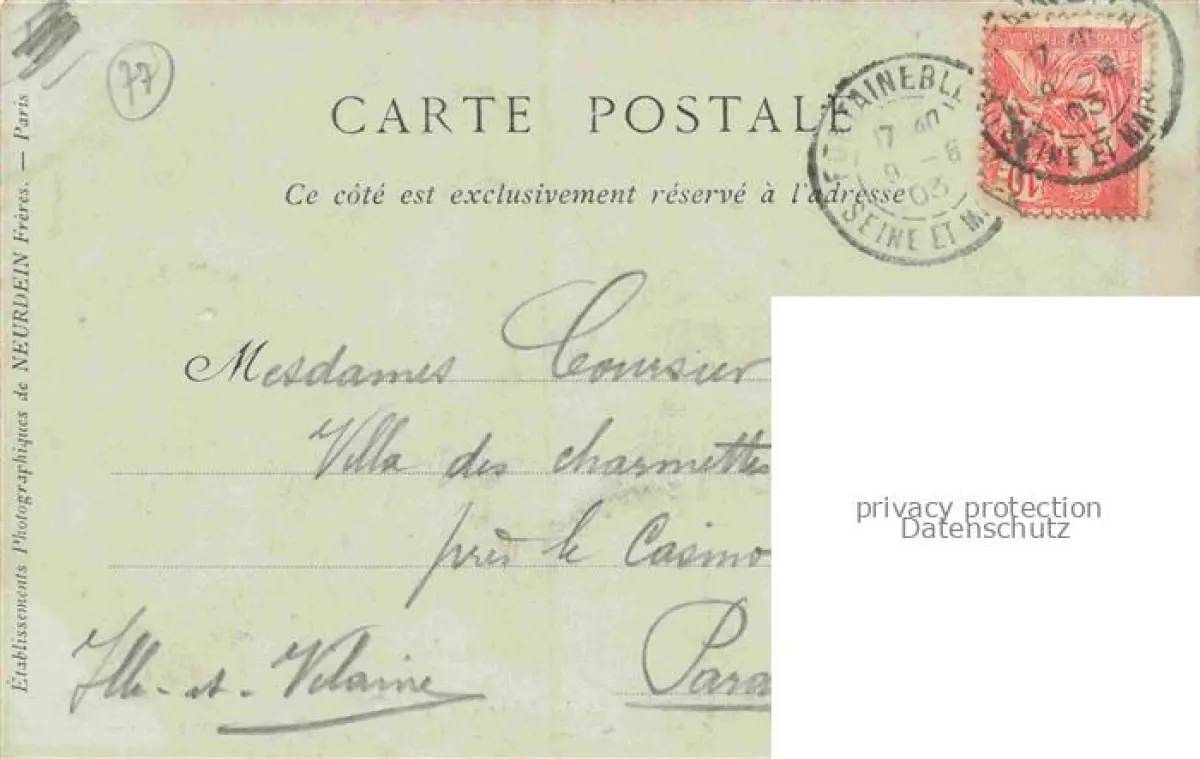 77
CARTE POSTALE
Ce côté est exclusivement réservé à l'adresse
FONTAINEBLE
17 40
9 - 8
03
SEINE ET MA
SEINE ET MARNE
10
Mesdames Coursier
Villa des charmettes
près le Casino
Ille-et-Vilaine Para
Établissements Photographiques de NEURDEIN Frères. — Paris
privacy protection
Datenschutz